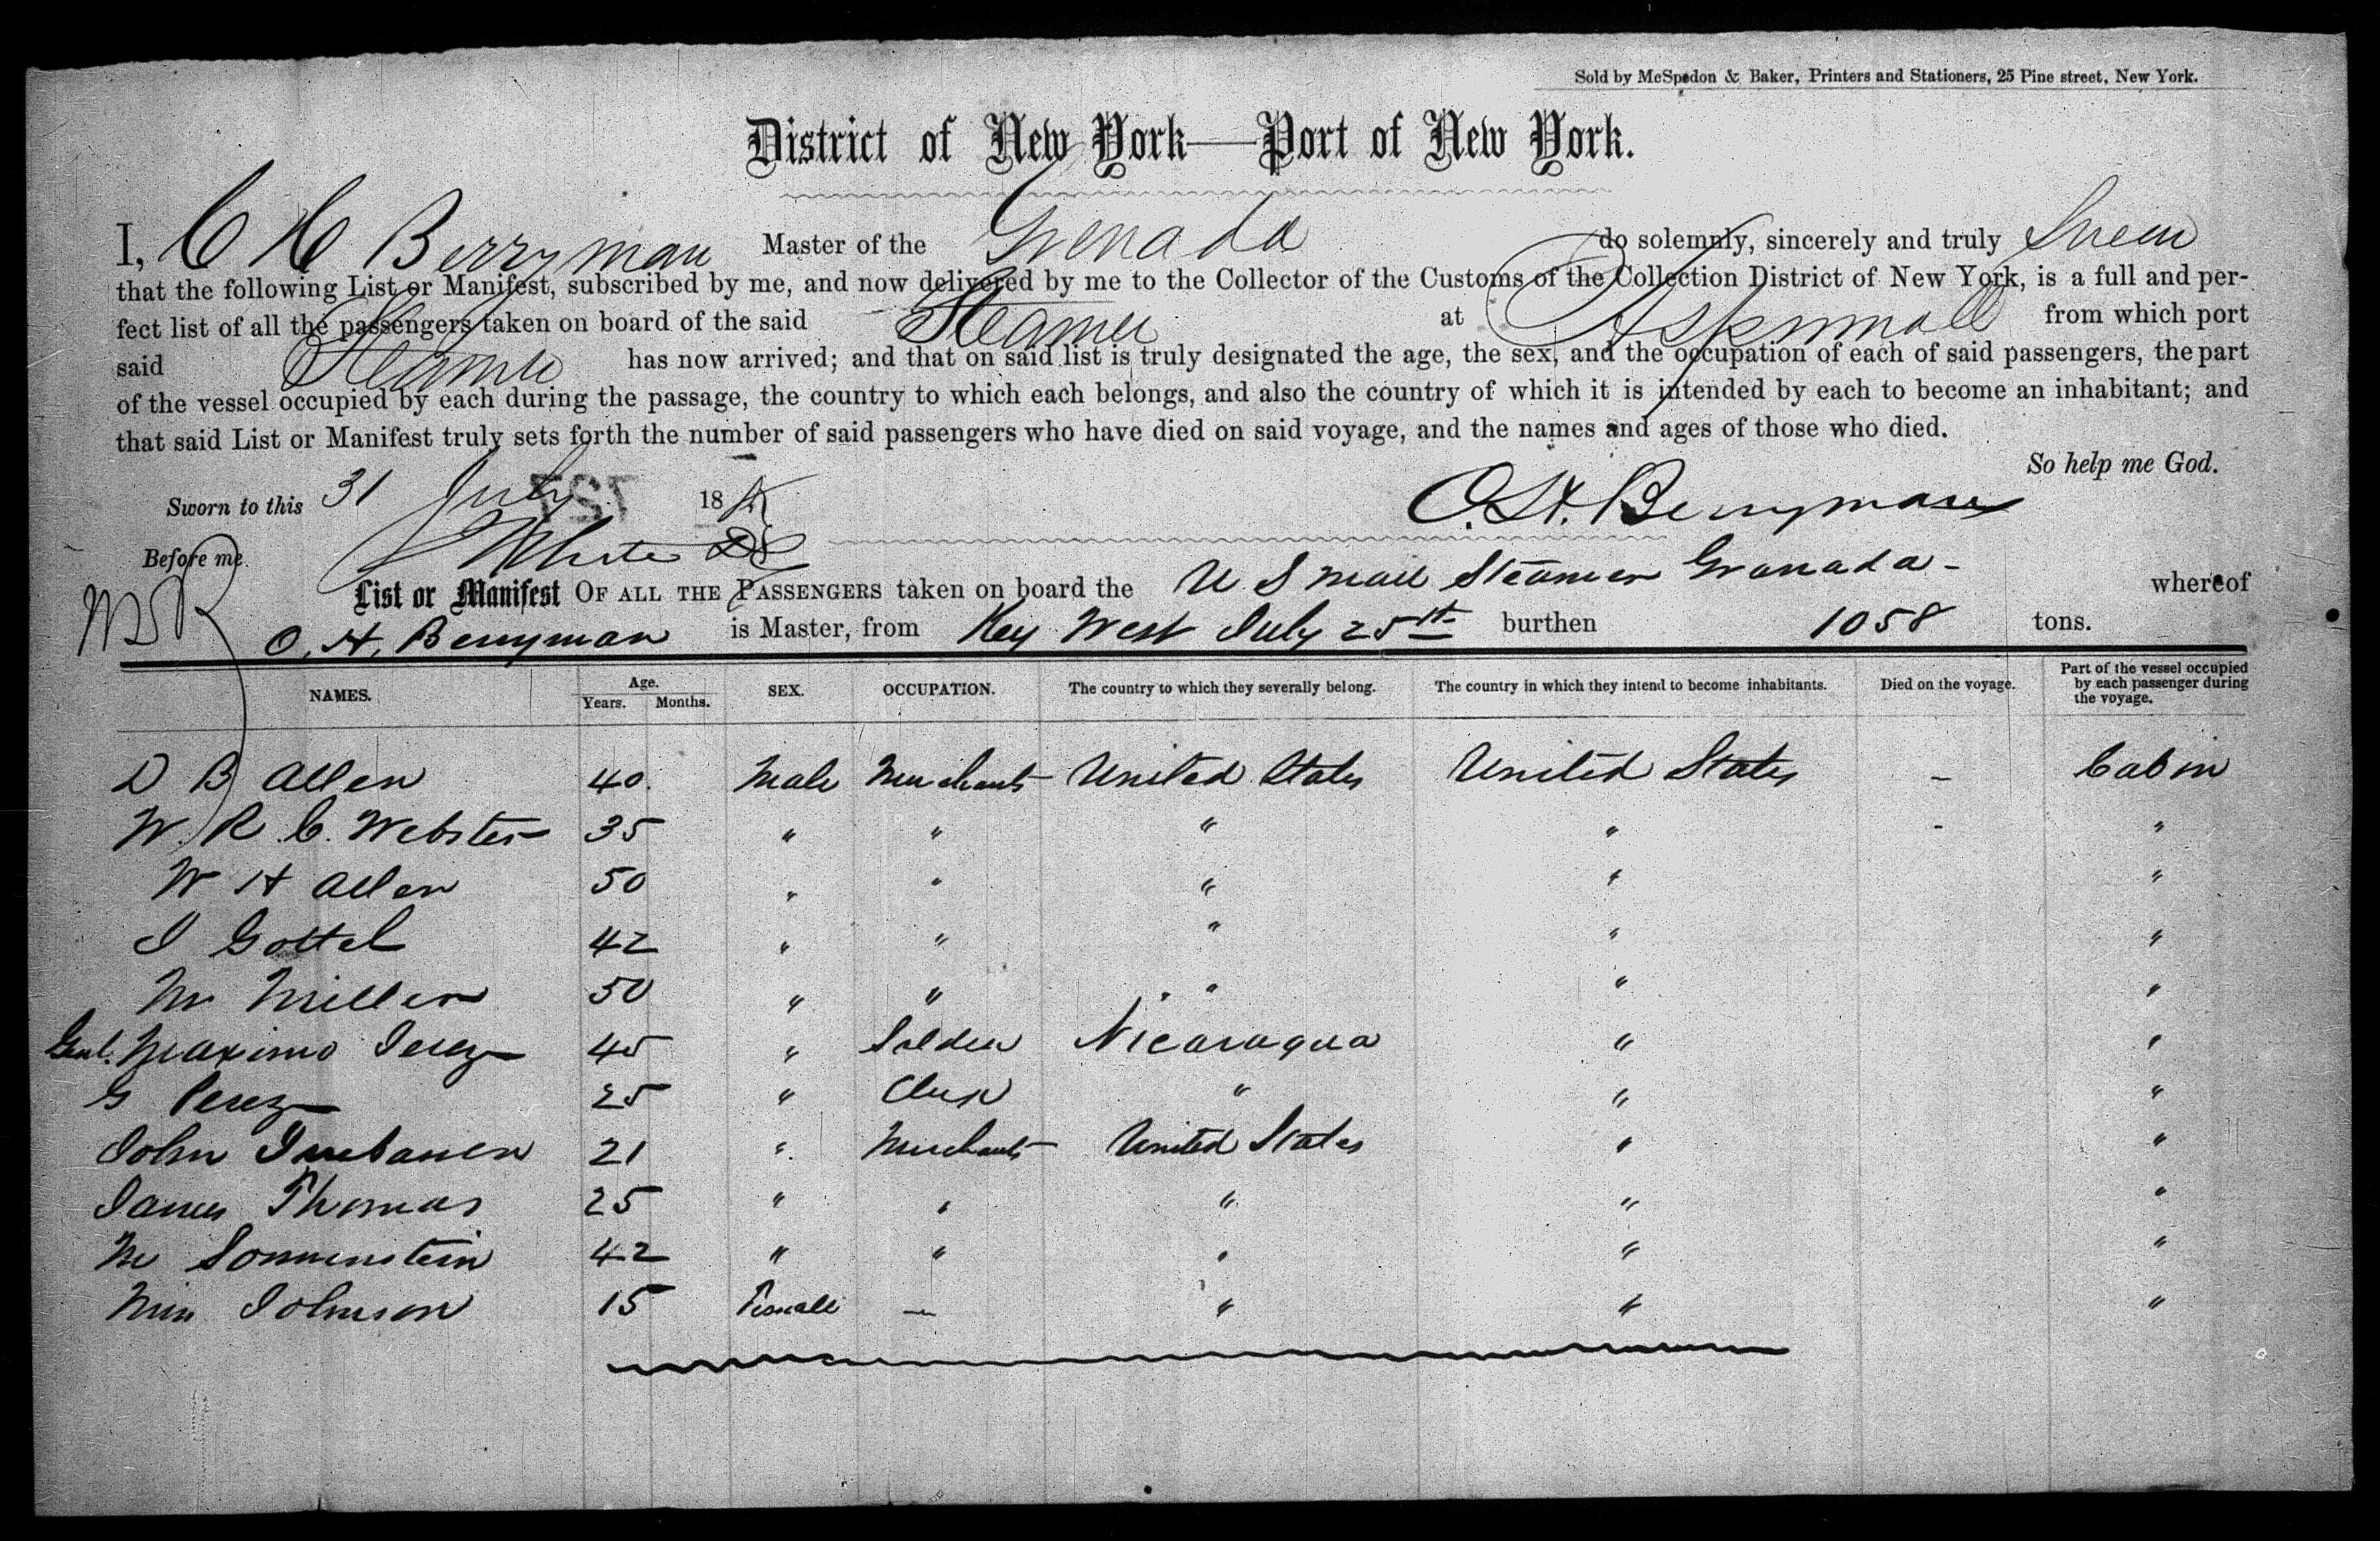 Sold by McSpedon & Baker, Printers and Stationers, 25 Pine street, New York.
District of New York—Port of New York.
I, C H Berryman Master of the Grenada do solemnly, sincerely and truly Swear
that the following List or Manifest, subscribed by me, and now delivered by me to the Collector of the Customs of the Collection District of New York, is a full and per-
fect list of all the passengers taken on board of the said Steamer at Aspinwall from which port
said Steamer has now arrived; and that on said list is truly designated the age, the sex, and the occupation of each of said passengers, the part
of the vessel occupied by each during the passage, the country to which each belongs, and also the country of which it is intended by each to become an inhabitant; and
that said List or Manifest truly sets forth the number of said passengers who have died on said voyage, and the names and ages of those who died.
So help me God.
Sworn to this 31 July 18
O. H. Berryman
Before me. White
List or Manifest OF ALL THE PASSENGERS taken on board the U S Mail Steamer Granada - whereof
O. H. Berryman is Master, from Key West July 25th burthen 1058 tons.
NAMES. Age. Years. Months. SEX. OCCUPATION. The country to which they severally belong. The country in which they intend to become inhabitants. Died on the voyage. Part of the vessel occupied by each passenger during the voyage.
D B Allen 40. Male Merchant United States United States - Cabin
W. R. C. Webster 35 " " " " - "
W H Allen 50 " " " " "
I Gottel 42 " " " " "
Mr Miller 50 " " " " "
Genl. Maximo Jerez 45 " Soldier Nicaragua " "
G Perez 25 " Clerk " " "
John 21 " Merchant United States " "
James Thomas 25 " " " " "
Mr Sonnenstein 42 " " " " "
Miss Johnson 15 Female — " " "